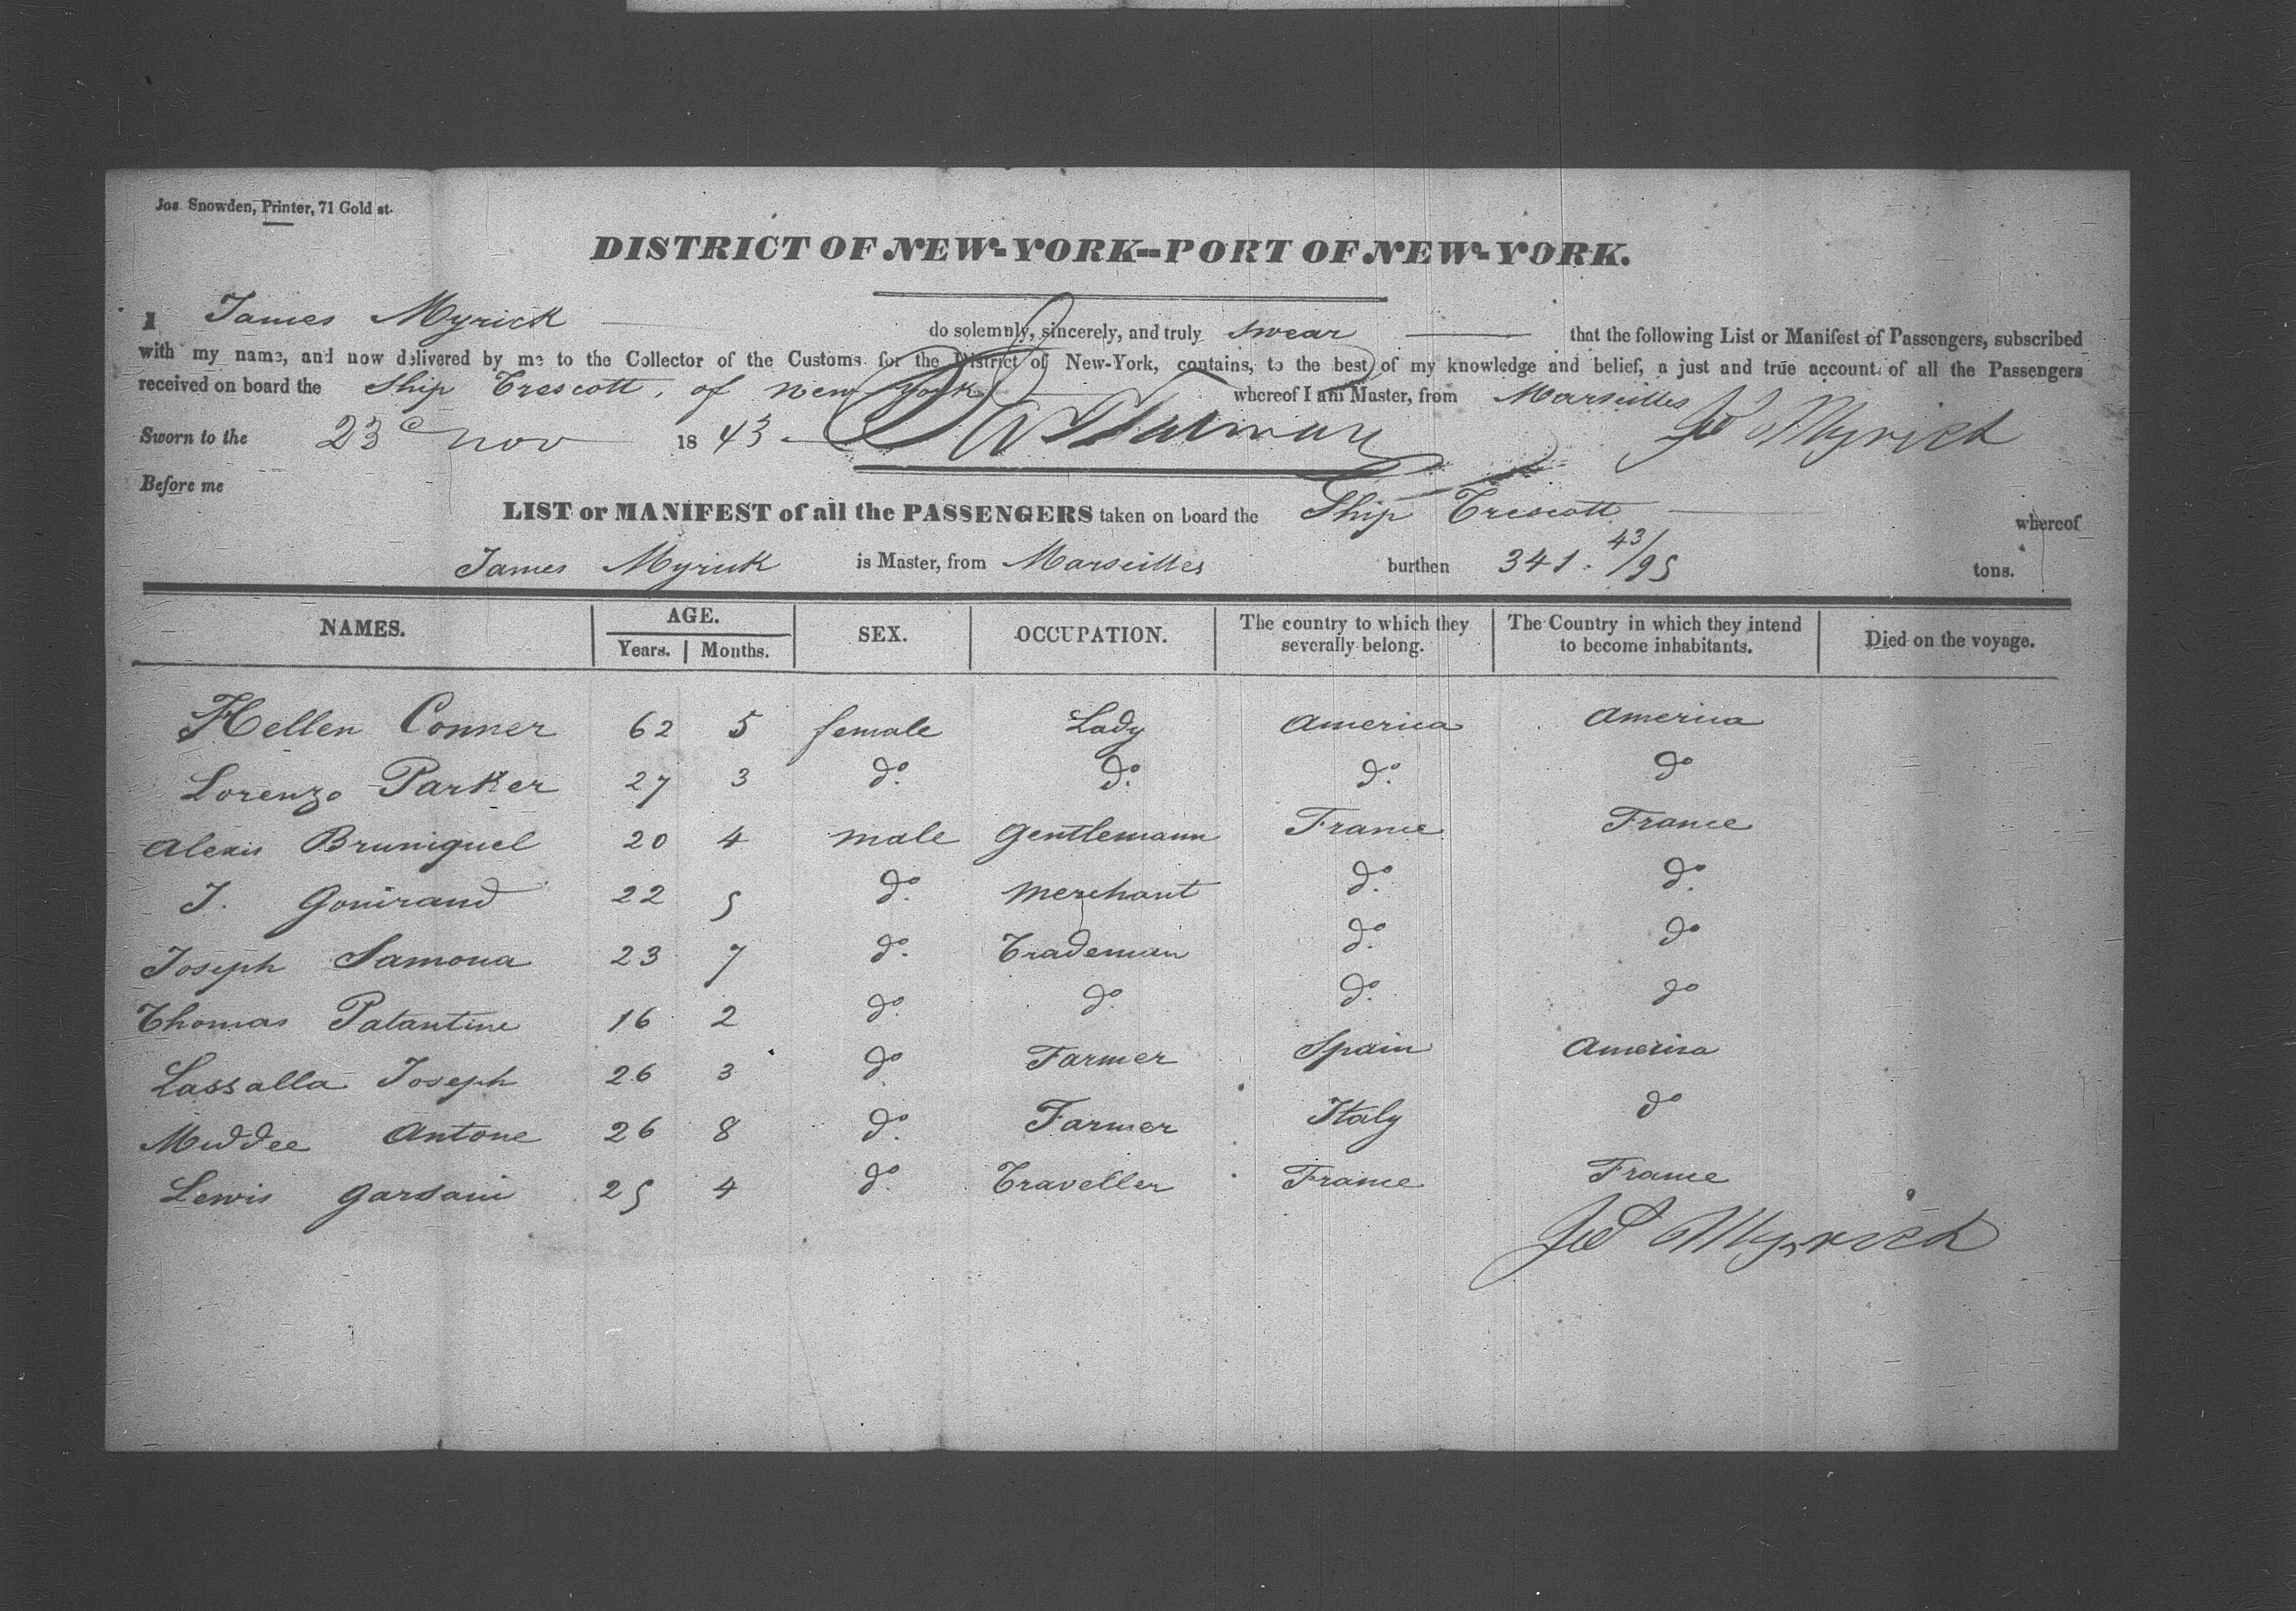 Jos. Snowden, Printer, 71 Gold st.
DISTRICT OF NEW-YORK--PORT OF NEW-YORK.
I James Myrick do solemnly, sincerely, and truly swear that the following List or Manifest of Passengers, subscribed
with my name, and now delivered by me to the Collector of the Customs for the District of New-York, contains, to the best of my knowledge and belief, a just and true account of all the Passengers
received on board the Ship Trescott, of New York whereof I am Master, from Marseilles
Sworn to the 23d Nov 1843 Jas Myrick
Before me
LIST or MANIFEST of all the PASSENGERS taken on board the Ship Trescott whereof
James Myrick is Master, from Marseilles burthen 341. 43/95 tons.
NAMES. AGE. Years. Months. SEX. OCCUPATION. The country to which they severally belong. The Country in which they intend to become inhabitants. Died on the voyage.
Hellen Conner 62 5 female Lady America America
Lorenzo Parker 27 3 do. do. do. do
Alexis Bruniquel 20 4 male Gentlemann France France
J. Gouirand 22 5 do. Merchant do. do.
Joseph Samona 23 7 do. Trademan do. do
Thomas Patantine 16 2 do. do. do. do
Lassalla Joseph 26 3 do Farmer Spain America
Middee Antone 26 8 do. Farmer Italy do
Lewis Garsain 25 4 do. Traveller France France
Jas Myrick